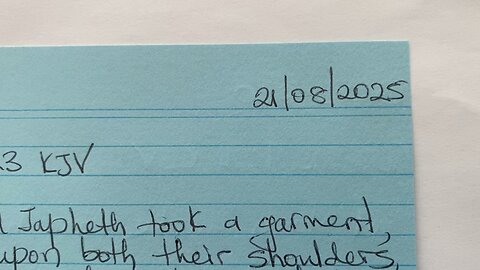 21/08/2025
3 KJV
Japheth took a garment,
upon both their shoulders,